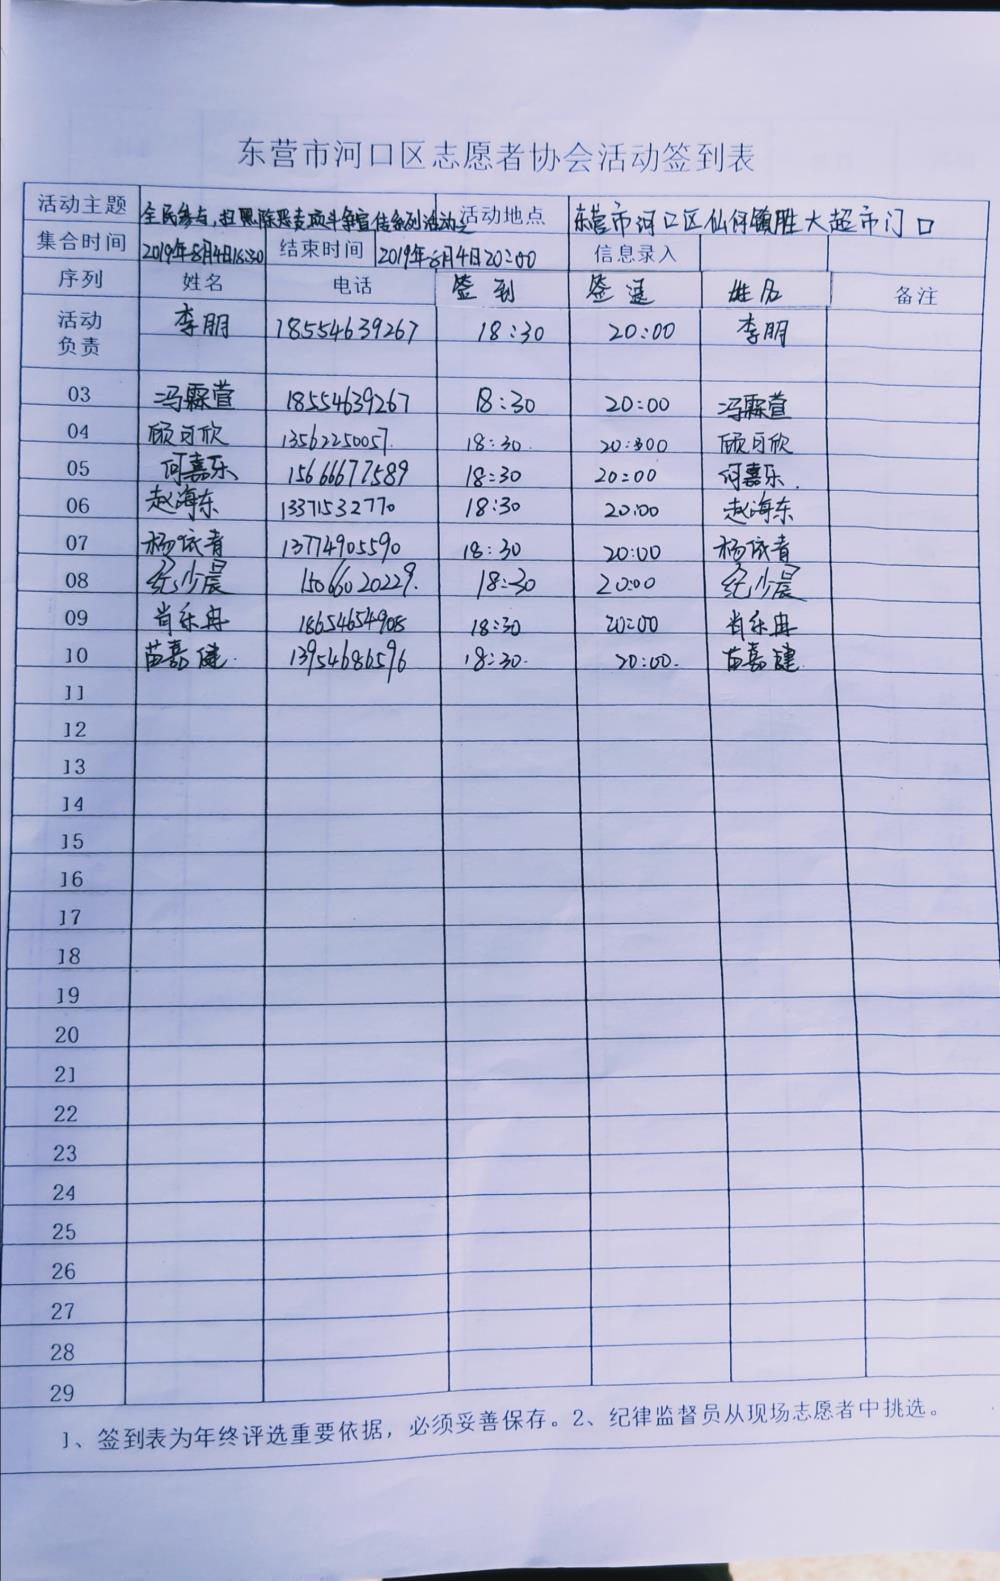 东营市河口区志愿者协会活动签到表
活动主题 全民参与,扫黑除恶专项斗争宣传系列活动之 活动地点 东营市河口区仙河镇胜大超市门口
集合时间 2019年8月4日18:30 结束时间 2019年8月4日20:00 信息录入
序列 姓名 电话 签到 签退 姓名 备注
活动负责 李朋 18554639267 18:30 20:00 李朋
03 冯霖萱 18554639267 18:30 20:00 冯霖萱
04 顾可欣 13562250057. 18:30. 20:300 顾可欣
05 何嘉乐 15666677589 18:30 20:00 何嘉乐.
06 赵海东 13371532770 18:30 20:00 赵海东
07 杨依青 13774905590 18:30 20:00 杨依青
08 纪少晨 15066020229. 18:30 20:00 纪少晨
09 肖乐冉 18654654908 18:30 20:00 肖乐冉
10 苗嘉健. 13954686596 18:30. 20:00. 苗嘉健.
11
12
13
14
15
16
17
18
19
20
21
22
23
24
25
26
27
28
29
1、签到表为年终评选重要依据，必须妥善保存。2、纪律监督员从现场志愿者中挑选。